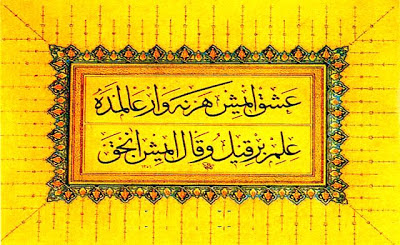 عشق ایمیش هر نه وار عالمده
علم بر قیل و قال ایمیش انجق